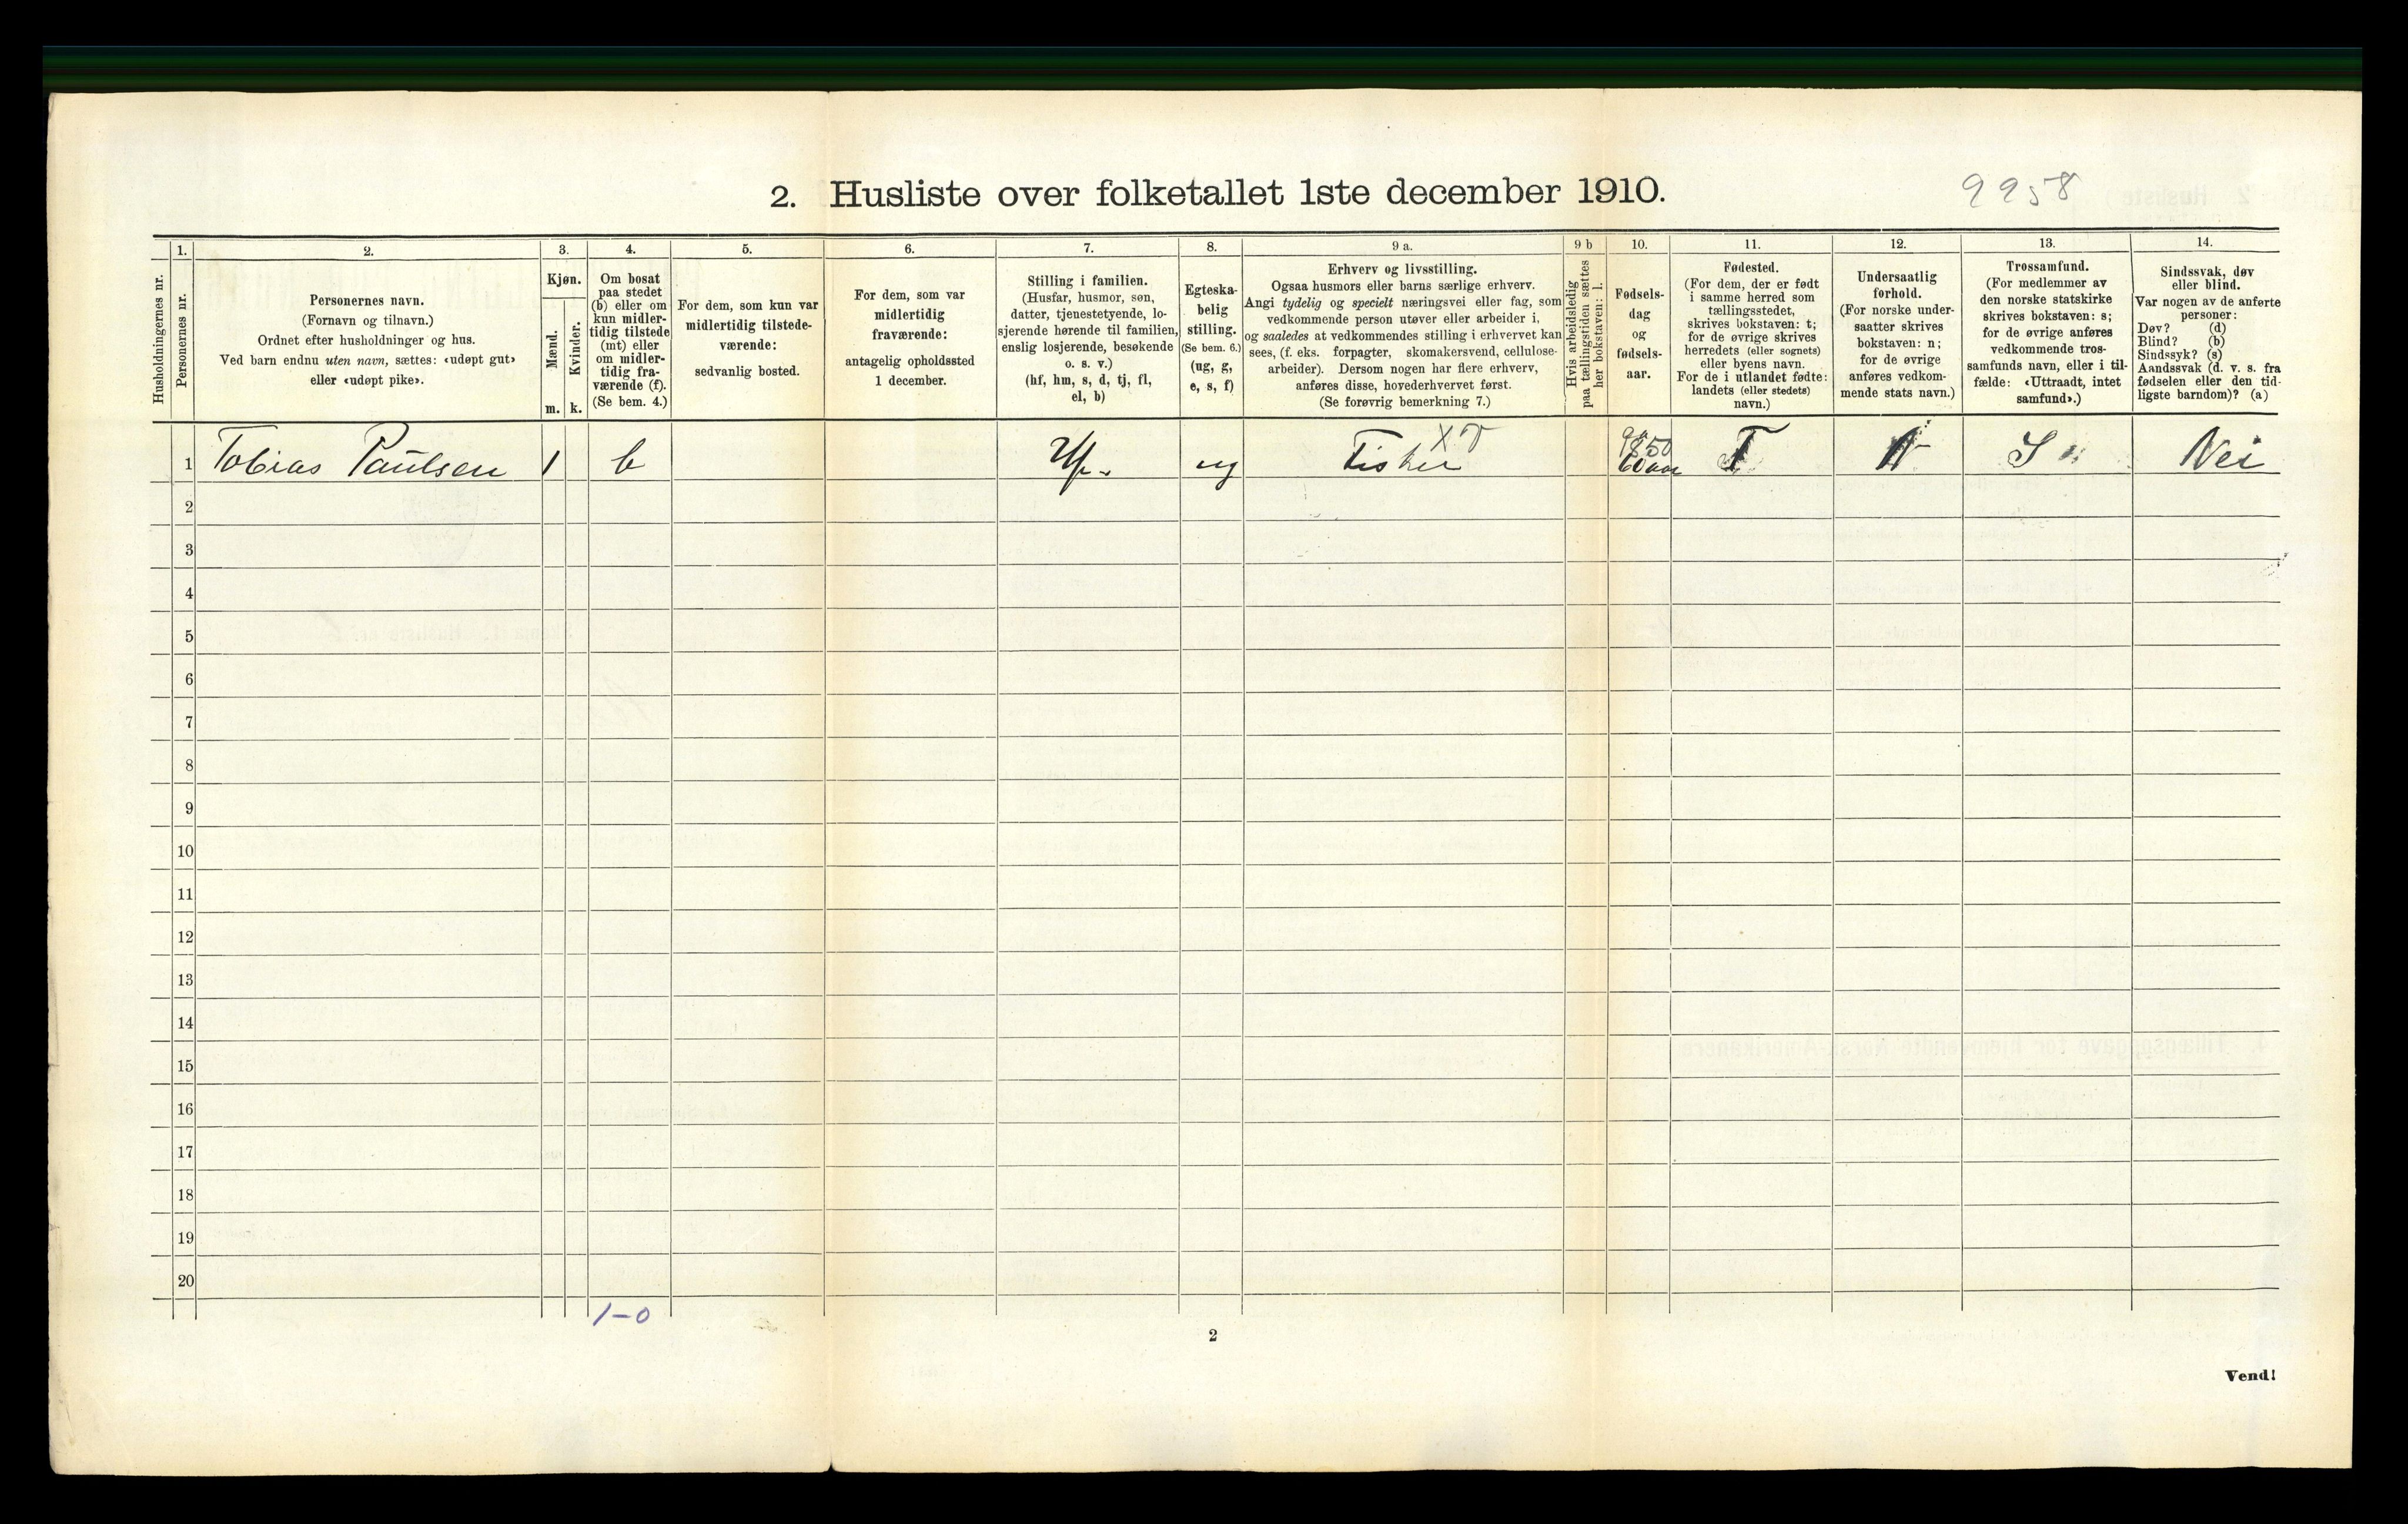 2. Husliste over folketallet 1ste december 1910.
9958
Husholdningernes nr.
1.
Personernes nr.
2.
Personernes navn.
(Fornavn og tilnavn.)
Ordnet efter husholdninger og hus.
Ved barn endnu uten navn, sættes: «udøpt gut»
eller «udøpt pike».
3.
Kjøn.
Mænd.
m.
Kvinder.
k.
4.
Om bosat
paa stedet
(b) eller om
kun midler-
tidig tilstede
(mt) eller
om midler-
tidig fra-
værende (f).
(Se bem. 4.)
5.
For dem, som kun var
midlertidig tilstede-
værende:
sedvanlig bosted.
6.
For dem, som var
midlertidig
fraværende:
antagelig opholdssted
1 december.
7.
Stilling i familien.
(Husfar, husmor, søn,
datter, tjenestetyende, lo-
sjerende hørende til familien,
enslig losjerende, besøkende
o. s. v.)
(hf, hm, s, d, tj, fl,
el, b)
8.
Egteska-
belig
stilling.
(Se bem. 6.)
(ug, g,
e, s, f)
9 a.
Erhverv og livsstilling.
Ogsaa husmors eller barns særlige erhverv.
Angi tydelig og specielt næringsvei eller fag, som
vedkommende person utøver eller arbeider i,
og saaledes at vedkommendes stilling i erhvervet kan
sees, (f. eks. forpagter, skomakersvend, cellulose-
arbeider). Dersom nogen har flere erhverv,
anføres disse, hovederhvervet først.
(Se forøvrig bemerkning 7.)
9 b
Hvis arbeidsledig
paa tællingstiden sættes
her bokstaven: l.
10.
Fødsels-
dag
og
fødsels-
aar.
11.
Fødested.
(For dem, der er født
i samme herred som
tællingsstedet,
skrives bokstaven: t;
for de øvrige skrives
herredets (eller sognets)
eller byens navn.
For de i utlandet fødte:
landets (eller stedets)
navn.)
12.
Undersaatlig
forhold.
(For norske under-
saatter skrives
bokstaven: n;
for de øvrige
anføres vedkom-
mende stats navn.)
13.
Trossamfund.
(For medlemmer av
den norske statskirke
skrives bokstaven: s;
for de øvrige anføres
vedkommende tros-
samfunds navn, eller i til-
fælde: «Uttraadt, intet
samfund».)
14.
Sindssvak, døv
eller blind.
Var nogen av de anførte
personer:
Døv? (d)
Blind? (b)
Sindssyk? (s)
Aandssvak (d. v. s. fra
fødselen eller den tid-
ligste barndom)? (a)
1 Tobias Paulsen 1 b Hf. ug Fisker 1850 60 aar T N S Nei
X
2
3
4
5
6
7
8
9
10
11
12
13
14
15
16
17
18
19
20
1-0
2
Vend!